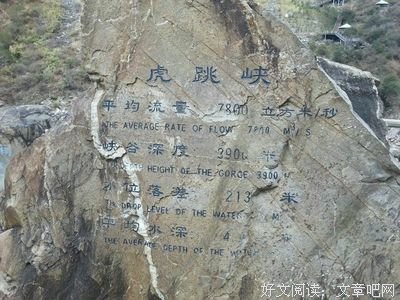 虎跳峡
平均流量 7800 立方米/秒
THE AVERAGE RATE OF FLOW 7800 M³/S
峡谷深度 3900 米
HEIGHT OF THE GORGE 3900 M
水位落差 213 米
THE DROP LEVEL OF THE WATER M
平均水深 4 米
THE AVERAGE DEPTH OF THE WATER
好文阅读，文章吧网